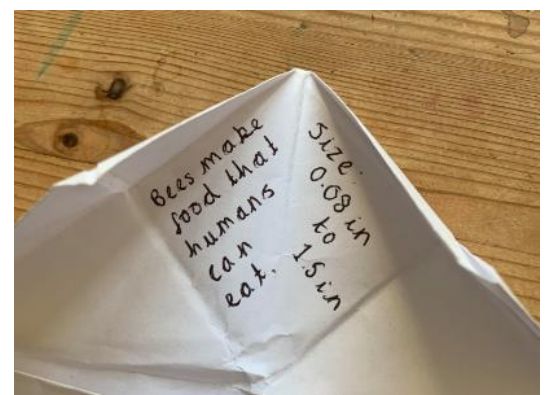 Bees make
food that
humans
can
eat.
Size:
0.08 in
to
1.5in